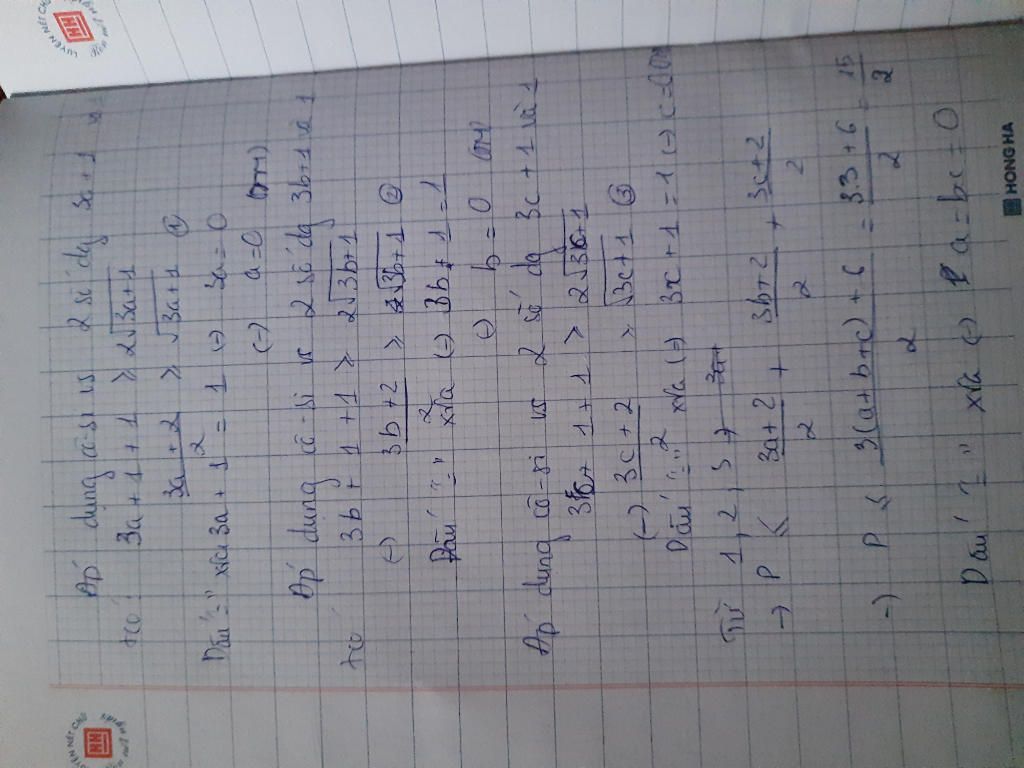 Áp dụng cô-si vs 2 số dg 3a+1 và 1
tcó: 3a+1+1 ≥ 2√3a+1
3a+2/2 ≥ √3a+1 ①
Dấu "=" xra 3a+1=1 (-) 3a=0
(-) a=0 (tm)
Áp dụng cô-si vs 2 số dg 3b+1 và 1
tcó 3b+1+1 ≥ 2√3b+1
(-) 3b+2/2 ≥ √3b+1 ②
Dấu "=" xra (-) 3b+1=1
(-) b=0 (tm)
Áp dụng cô-si vs 2 số dg 3c+1 và 1
3c+1+1 ≥ 2√3c+1
(-) 3c+2/2 ≥ √3c+1 ③
Dấu "=" xra (-) 3c+1=1 (-) c=0(tm)
Từ 1, 2, 3 →
→ P ≤ 3a+2/2 + 3b+2/2 + 3c+2/2
→) P ≤ 3(a+b+c)+6/2 = 3.3+6/2 = 15/2
Dấu "=" xra (-) a=bc=0
HONG HA
LUYỆN NÉT CHỮ
HH
LUYỆN NÉT CHỮ
HH